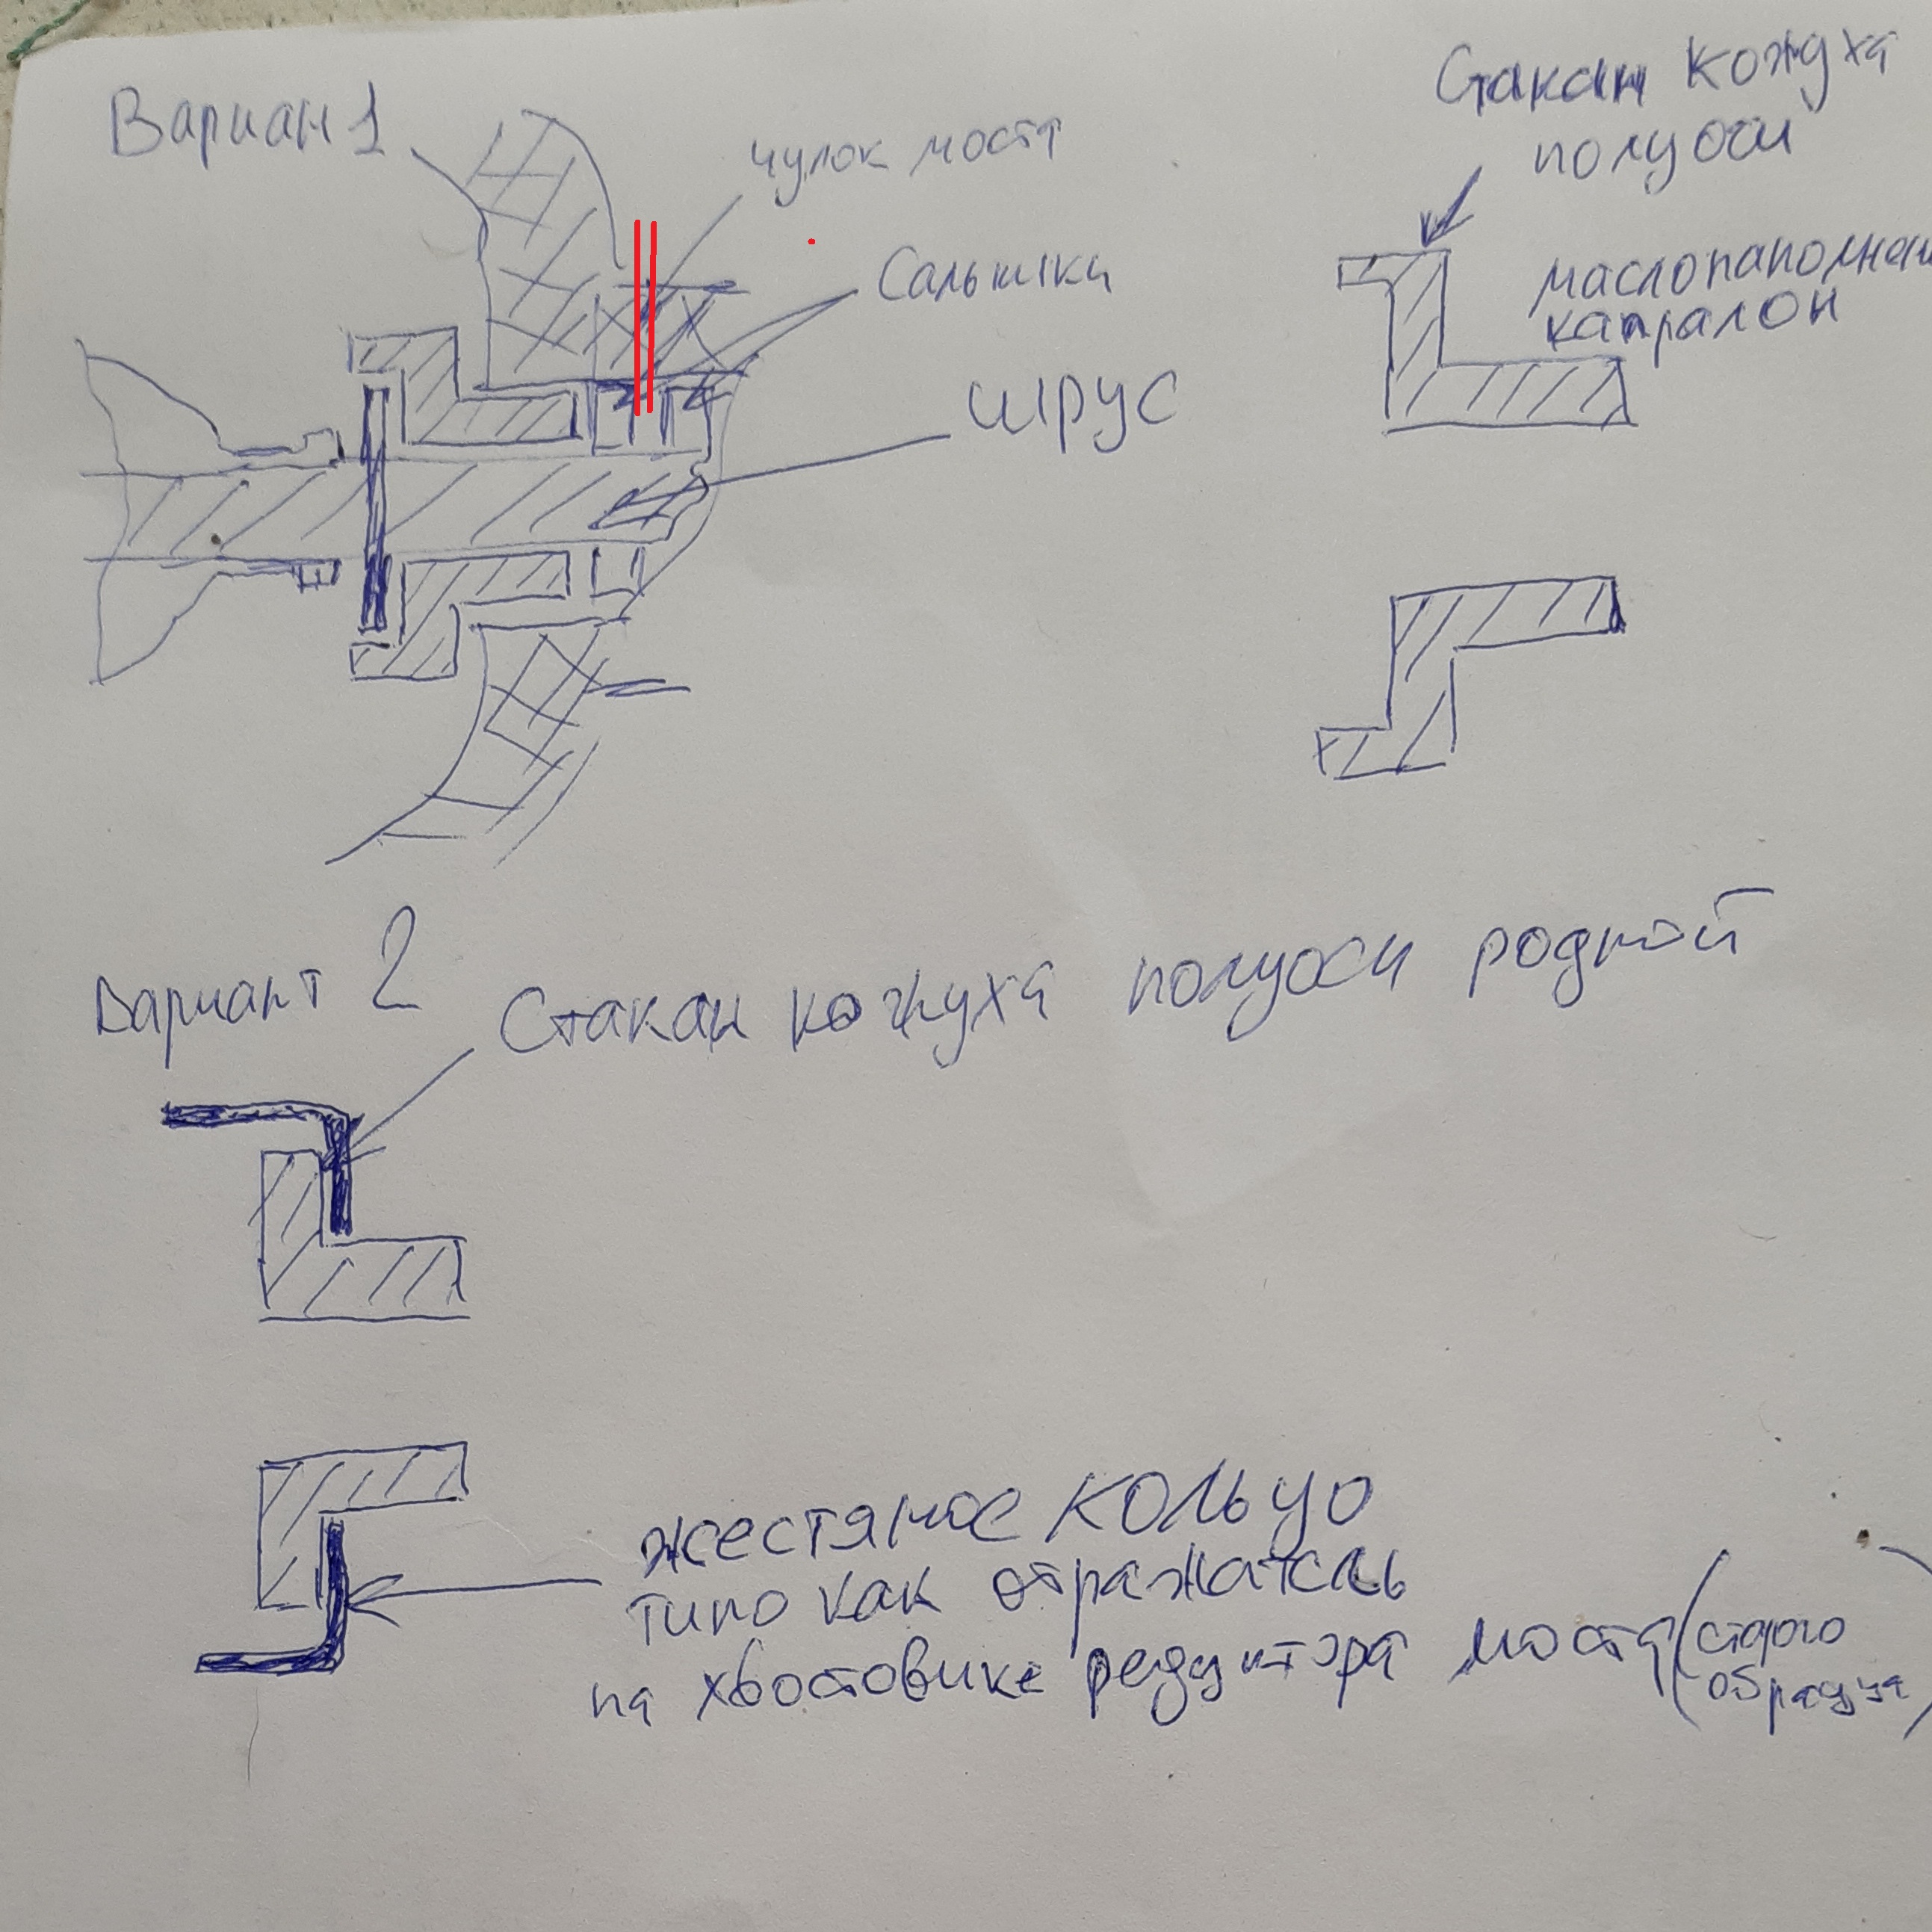 Вариан 1
чулок моста
Сальники
ШРУС
Стакан кожуха
полуоси
маслонаполнен
капралон
Вариант 2
Стакан кожуха полуоси родной
жестяное кольцо
типо как отражатель
на хвостовике редуктора моста (старого
образца)